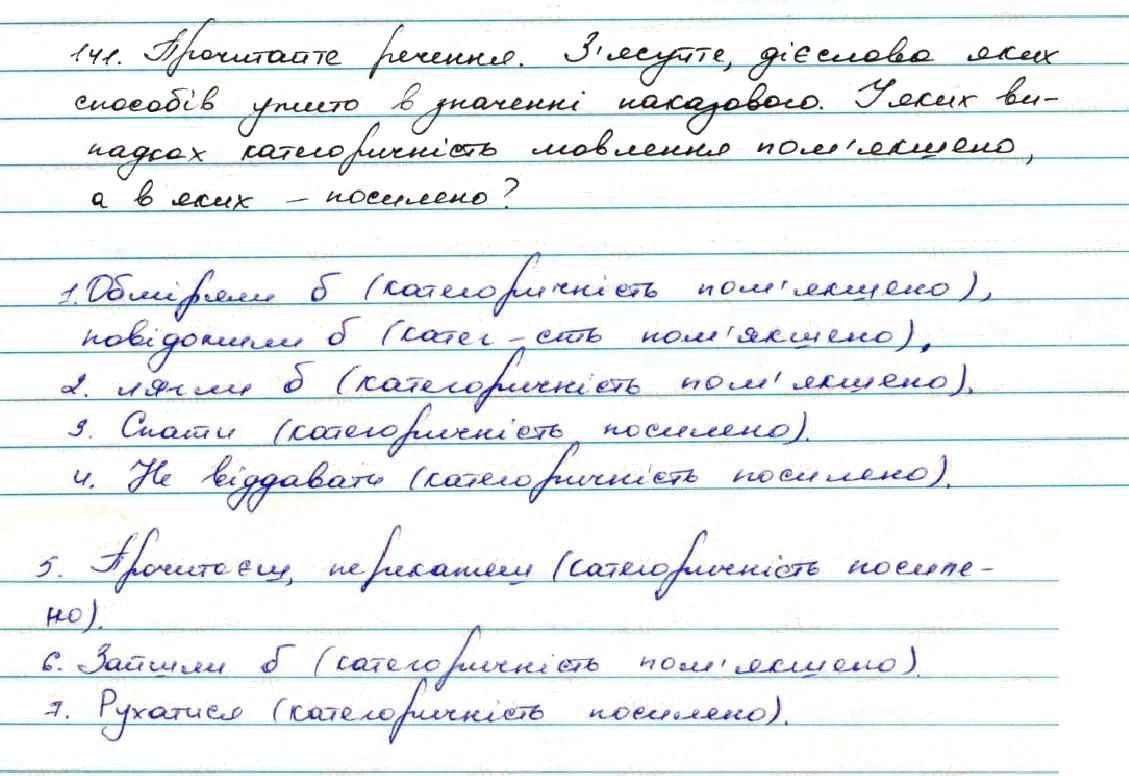 141. Прочитайте речення. З'ясуйте, дієслова яких
способів ужито в значенні наказового. У яких ви-
падках категоричність мовлення пом'якшено,
а в яких – посилено?
1. Обміряли б (категоричність пом'якшено),
повідомили б (катег-сть пом'якшено),
2. лягли б (категоричність пом'якшено).
3. Спати (категоричність посилено).
4. Не віддавати (категоричність посилено).
5. Прочитаєш, перекажеш (категоричність посиле-
но).
6. Зайшли б (категоричність пом'якшено).
7. Рухатися (категоричність посилено).